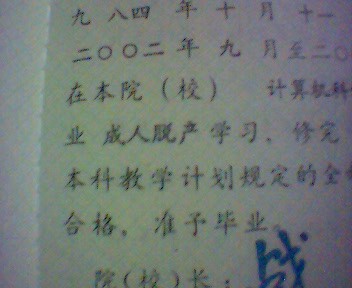 九 八四 年 十 月 十一
二〇〇二 年 九 月至二〇
在本院（校） 计算机科
业 成人脱产学习，修完
本科教学计划规定的全
合格，准予毕业。
院（校）长：